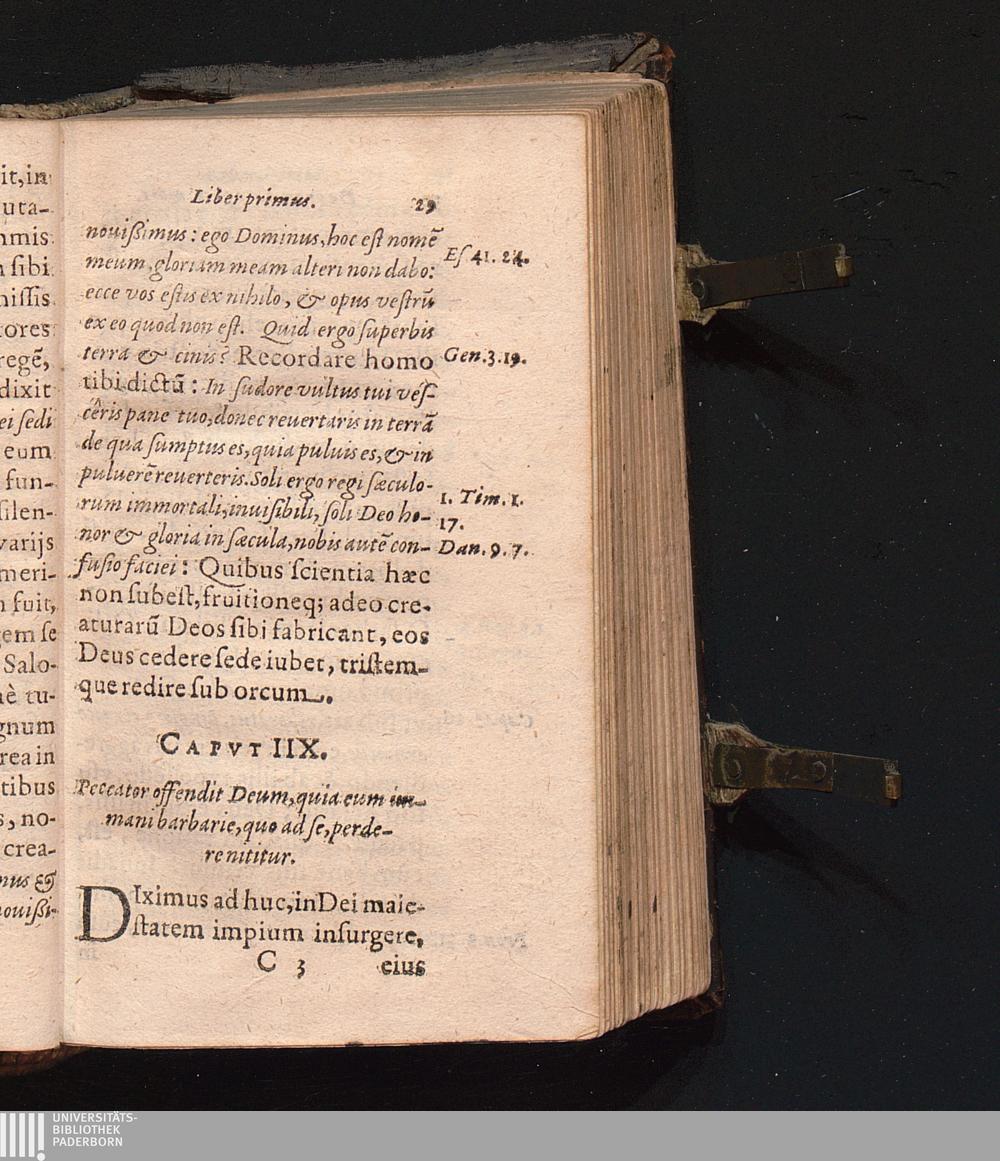 it, in
uta-
mmis
n sibi
nissis
tores
regē,
dixit
ei sedi
eum
fun-
silen-
varijs
meri-
n fuit,
gem se
Salo-
nè tu-
gnum
rea in
tibus
s, no-
crea-
nus &
nouißi-
Liber primus. 29
nouißimus: ego Dominus, hoc est nomē
meum, gloriam meam alteri non dabo:
ecce vos estis ex nihilo, & opus vestrū
ex eo quod non est. Quid ergo superbis
terra & cinis? Recordare homo
tibi dictū: In sudore vultus tui vés-
cêris pane tuo, donec reuertaris in terrā
de qua sumptus es, quia puluis es, & in
puluerē reuerteris. Soli ergo regi sæculo-
rum immortali, inuisibili, soli Deo ho-
nor & gloria in sæcula, nobis autē con-
fusio faciei: Quibus scientia hæc
non subest, fruitioneq; adeo cre-
aturarū Deos sibi fabricant, eos
Deus cedere sede iubet, tristem-
que redire sub orcum.
Es 41. 24.
Gen. 3. 19.
1. Tim. 1.
17.
Dan. 9. 7.
CAPVT IIX.
Peccator offendit Deum, quia eum im-
mani barbarie, quo ad se, perde-
re nititur.
DIximus ad huc, in Dei maie-
statem impium insurgere,
C 3 eius
UNIVERSITÄTS-
BIBLIOTHEK
PADERBORN